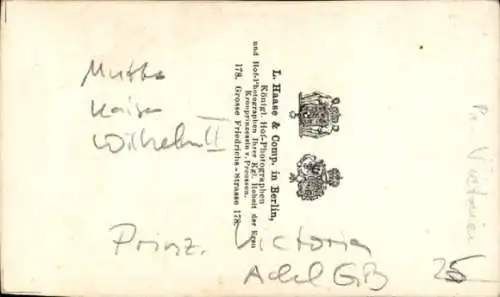 Mutter
Kaiser
Wilhelm II
L. Haase & Comp. in Berlin,
Königl. Hof-Photographen
und Hof-Photographen Ihrer Kgl. Hoheit der Frau
Kronprinzessin v. Preussen.
178. Grosse Friedrichs-Strasse 178.
Prinz. Victoria
Adel GB
25
Pr Victoria